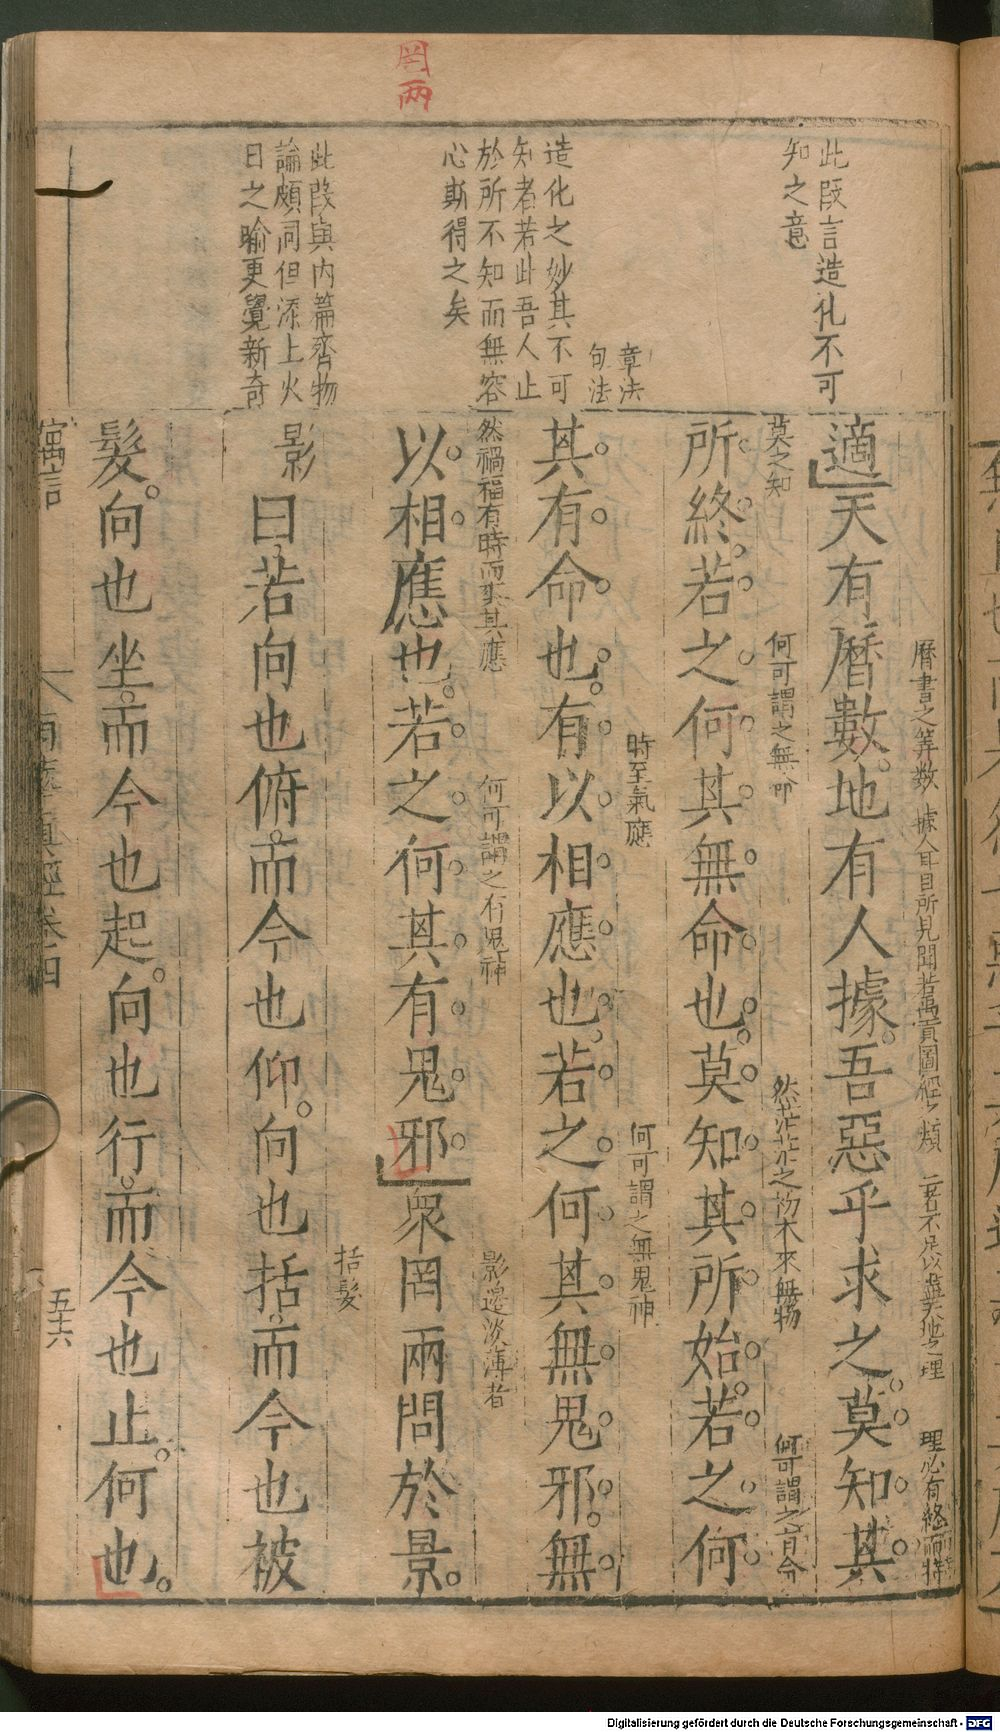 罔兩
此段言造化不可
知之意
章法
句法
造化之妙其不可
知者若此吾人止
於所不知而無容
心斯得之矣
此段與内篇齊物
論頗同但添上火
日之喻更覺新奇
曆書之筭数
據人耳目所見聞若禹貢圖經之類
二者不足以盡天地之理
理必有終而特
適天有曆數。地有人據。吾惡乎求之。莫知其
莫之知
何可謂之無命
然茫茫之初本來無物
何可謂之有命
所終。若之何其無命也。莫知其所始。若之何
時至氣應
何可謂之無鬼神
其有命也。有以相應也。若之何其無鬼邪。無
然禍福有時而爽其應
何可謂之有鬼神
影邊淡薄者
以相應也。若之何其有鬼邪。衆罔兩問於景。
括髮
影曰。若向也俯。而今也仰。向也括。而今也被
髮。向也坐。而今也起。向也行。而今也止。何也。
寓言
南華真經卷四
五十六
Digitalisierung gefördert durch die Deutsche Forschungsgemeinschaft - DFG